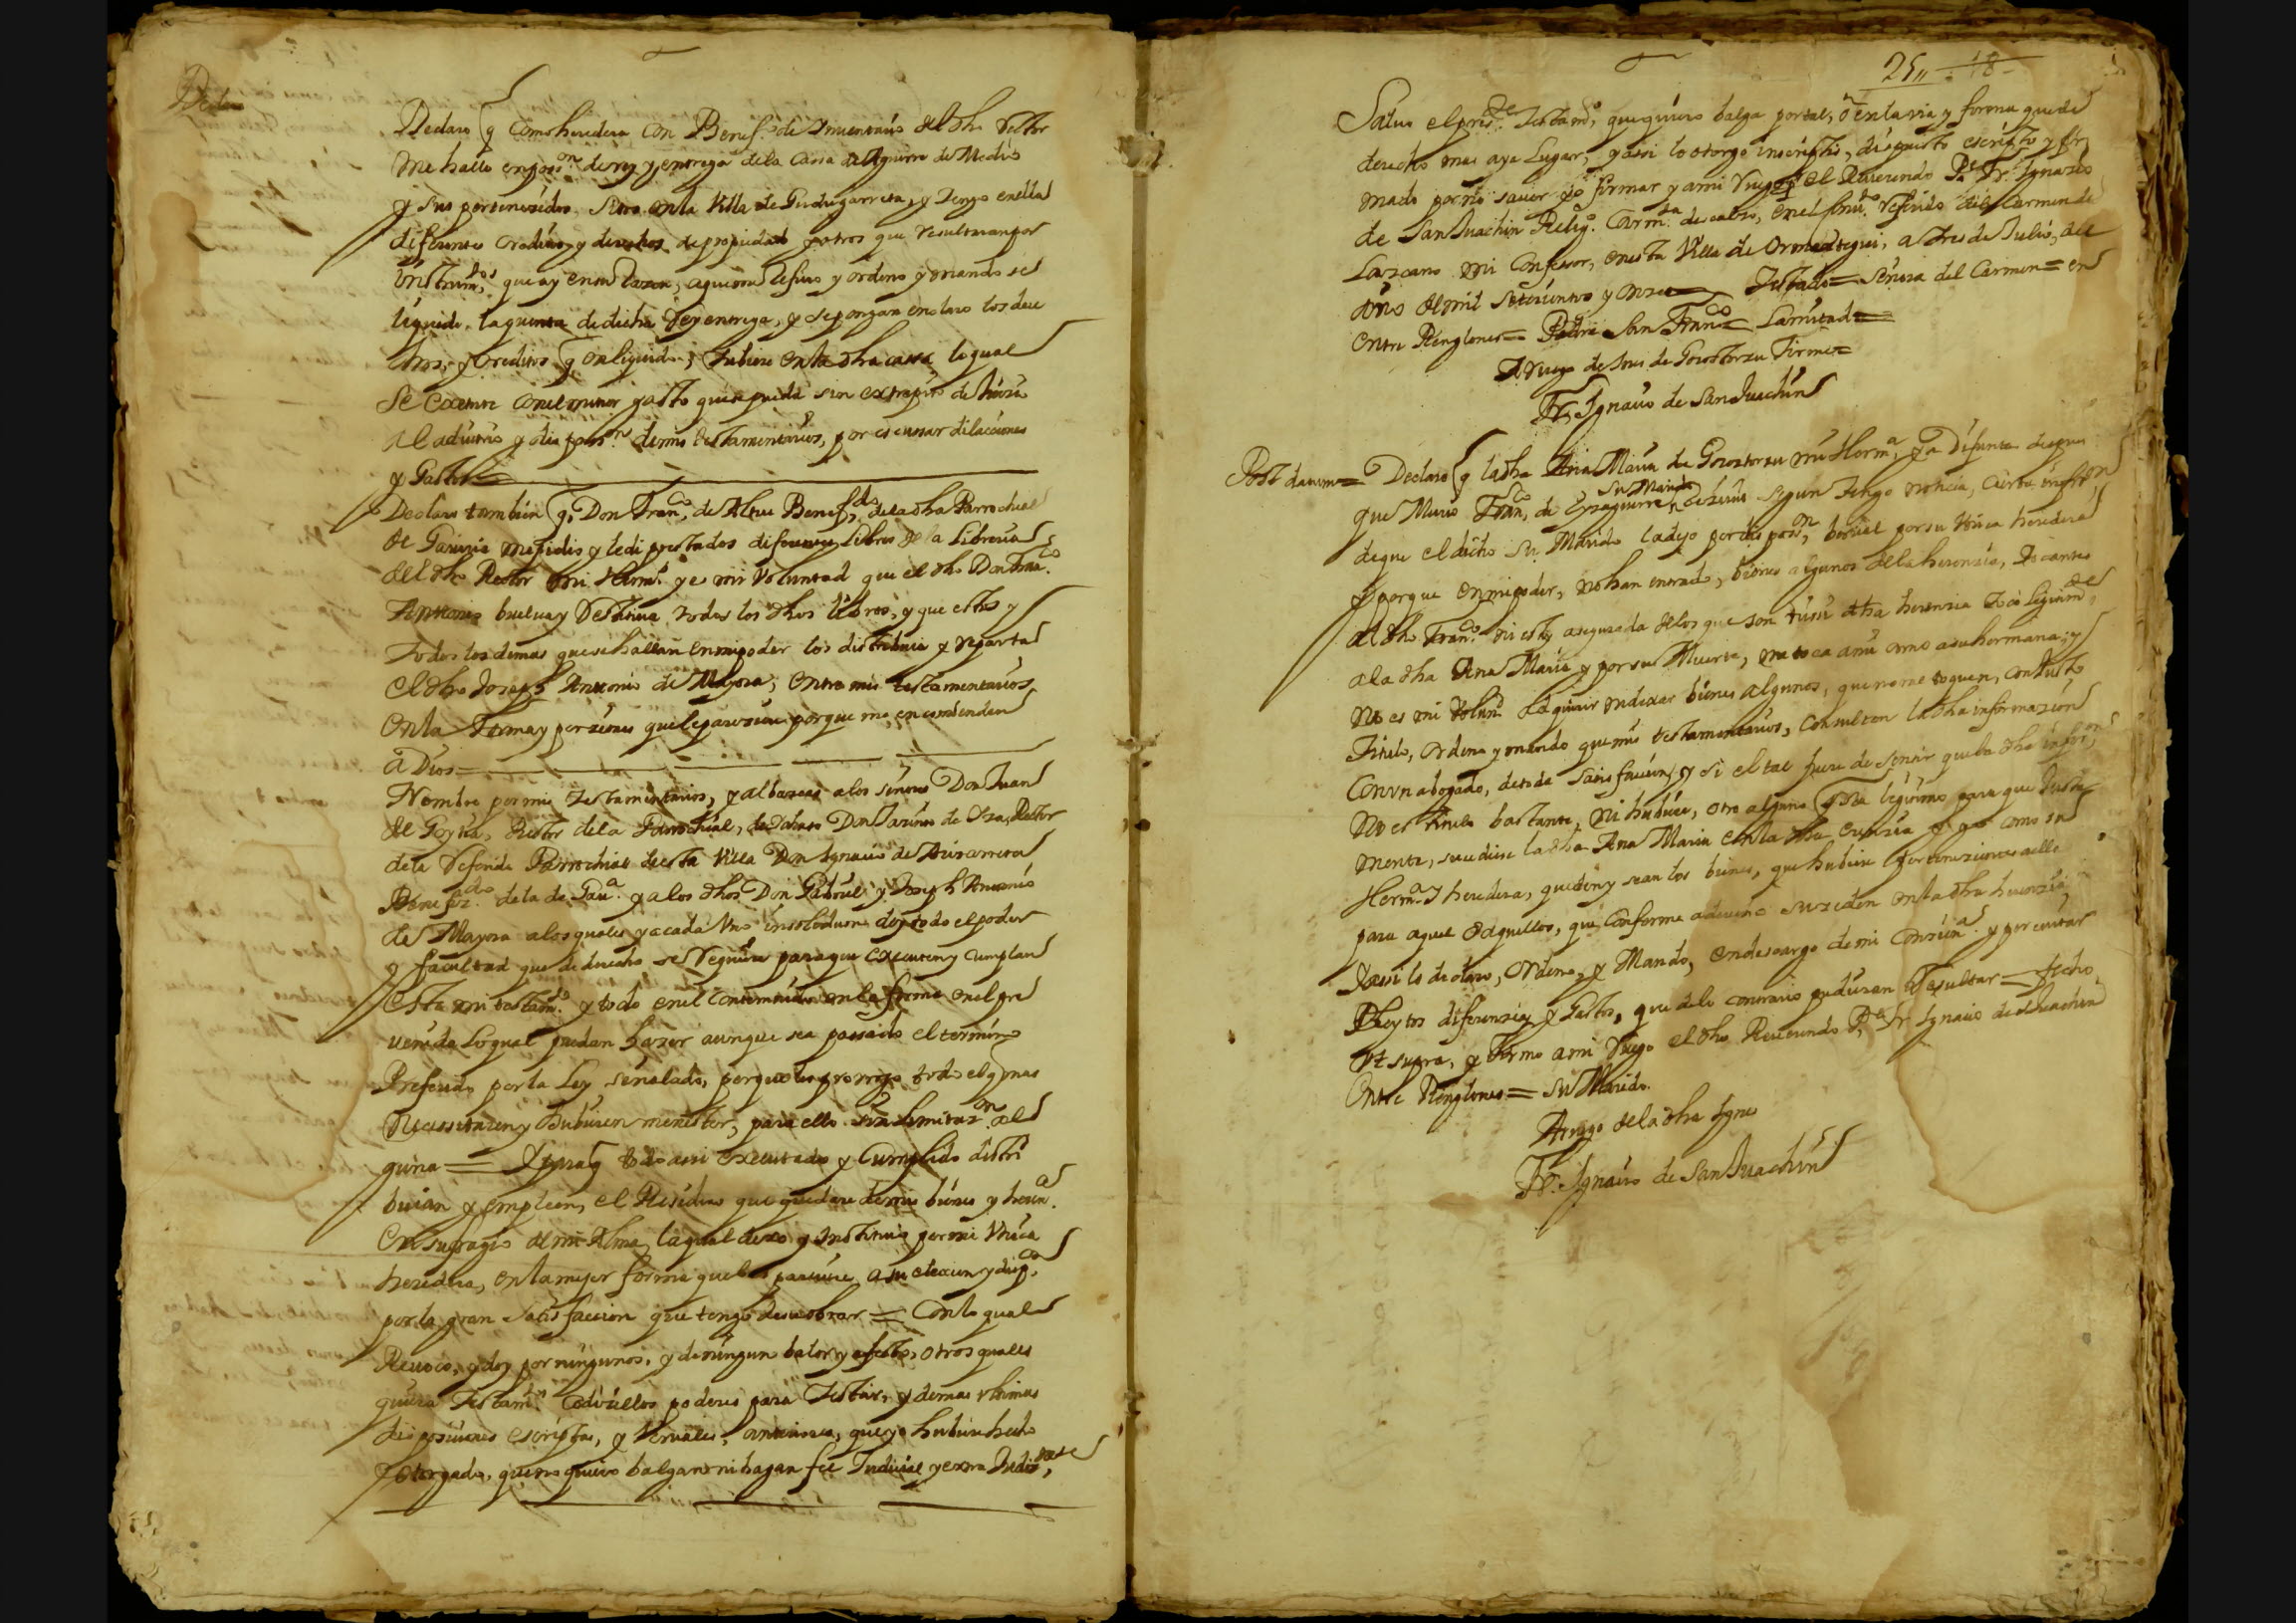 Declaro q como heredera con Benef.º de Inventario del dho Rector
me hallo en poss.on de rey y entrega de la Cassa de Aguirre de Medio
y sus pertenecidos, sitos en la Villa de Gudugarreta, y tengo en ella
diferentes creditos y derechos de propiedad y otros que resultaran por
instrum.tos que ay en su razon, a que me refiero y ordeno y mando se
liquide la quenta de dicha rey entrega, y se pongan en claro los dere
chos, y creditos q en liquido, tubiere en la dha cassa, lo qual
se execute con el menor gasto que se pueda sin extrepito de
al aduitrio y de mis testamentarios, por escussar dilaciones
y Gastos
Declaro tambien q Don Fran.co de Alcue Benef.do de la dha Parrochial
de Gaviria me pidio y le di prestados diferentes Libros de la Libreria
del dho Rector mi Herm.º y es mi voluntad que el dho Don Fran.co
buelva y restituia todos los dhos libros, y que estos y
todos los demas que se hallan en mi poder los distribuia y reparta
el dho Joseph Antonio de Mayora, entre mis testamentarios
en la forma y porziones que le pareziere porque me encomienden
a Dios
Nombro por mis testamentarios, y albazeas a los señores Don Juan
de Goytia, Rector de la Parrochial, de Don de Oza, Rector
de la referida Parrochial de esta Villa Don Ignacio de
Benefiz.do de la de Gau.ª y a los dhos Don Gabriel y Joseph Antonio
de Mayora a los quales y a cada Uno insolidum doy todo el poder
y facultad que de derecho se requiera para que executen y cumplan
este mi testam.to y todo en el contenido en la forma en el pre
venida lo qual puedan hazer aunque sea passado el termino
Prefenido por la Ley señalado, porque les prorrogo todo el q mas
necessitaren y hubieren menester, para ello sin limitaz.on al
guna = Y para q todo assi executado y Cumplido distri
buian y empleen, el Residuo que quedare de mis bienes y heren.ª
en sufragio de mi Alma, la qual dexo y instituio por mi Unica
heredera, en la mejor forma que les pareciere a su eleccion y disp.on
por la gran satisfaccion que tengo de su obrar = Con lo qual
Revoco, y doy por ningunos, y de ningun balor y efecto, otros quales
quiera Testam.tos Codicillos poderes para Testar, y demas ultimas
disposiciones escriptas, y verbales, que yo hubiere hecho
y otorgado, que no quiero balgan ni hagan fee Judicial y extra Judiz.mte
25,, 18
Salvo el pres.te Testam.to, que quiero balga por tal, o en la via y forma que de
derecho mas aya Lugar, y assi lo otorgo inscriptis, dispuesto escripto y fir
mado por no saver yo firmar y a mi ruego el Reverendo P.e Fr. Ignacio
de San Juachin Relig.º Carm.ta descalzo, en el conv.to referido del Carmen de
Lazcano mi Confessor, en esta Villa de Ormaiztegui, a tres de Julio, del
año de mil setecientos y onze Testado = Señora del Carmen = en
entre Renglones = Padre San Fran.co =
A ruego de Ines de Gorostorzu Firme =
Fr. Ignacio de San Juachin
Post datum = Declaro q la dha Ana Maria de Gorostorzu mi Herm.ª ya Difunta despues
su Marido
que Murio Fran.co de Eyzaguirre, segun tengo noticia, cierta infor.on
de que el dicho su Marido la dejo por disposs.on berual por su Unica heredera
y porque en mi poder, no han entrado, bienes algunos de la herenzia, tocantes
al dho Fran.co ni estoy asegurada de los que son tiene dha herenzia toco legitim.te
a la dha Ana Maria y por su Muerte, me toca a mi como a su hermana; y
no es mi Volun.d adquirir ni dexar bienes algunos, que no me toquen, con Justo
Titulo, ordeno y mando que mis testamentarios, consulten la dha informazion
con un abogado, de toda satisfaccion, y si el tal fuere de sentir que la dha infor.on
no es titulo bastante, ni hubiere, otro alguno q sea legitimo para que Justa
mente, sucediese la dha Ana Maria en la dha y yo como su
Herm.ª y heredera, queden y sean los bienes, que hubiere pertenezientes a ello
para aquel o aquellos, que conforme a derecho suzeden en la dha herenzia
Y assi lo declaro, ordeno, y Mando, en descargo de mi Conzien.ª y por evitar
Pleytos diferenzias y Gastos, que de lo contrario pudieran Resultar = fecho
Ut supra, y Firmo a mi ruego el dho Reverendo P.e Fr. Ignacio de San Juachin
Entre Renglones = su Marido.
A ruego de la dha Ygnes
Fr. Ignacio de San Juachin